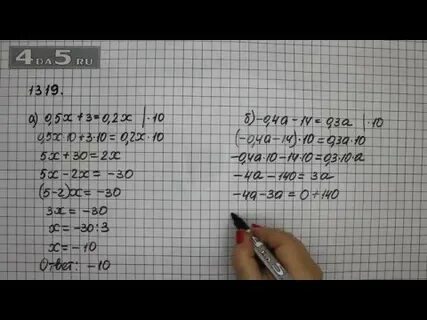 4ДА5.RU
1319.
а) 0,5x + 3 = 0,2x | ·10
0,5x·10 + 3·10 = 0,2x·10
5x + 30 = 2x
5x - 2x = -30
(5-2)x = -30
3x = -30
x = -30:3
x = -10
Ответ: -10
б) -0,4a - 14 = 0,3a | ·10
(-0,4a - 14)·10 = 0,3a·10
-0,4a·10 - 14·10 = 0,3·10·a
-4a - 140 = 3a
-4a - 3a = 0 + 140